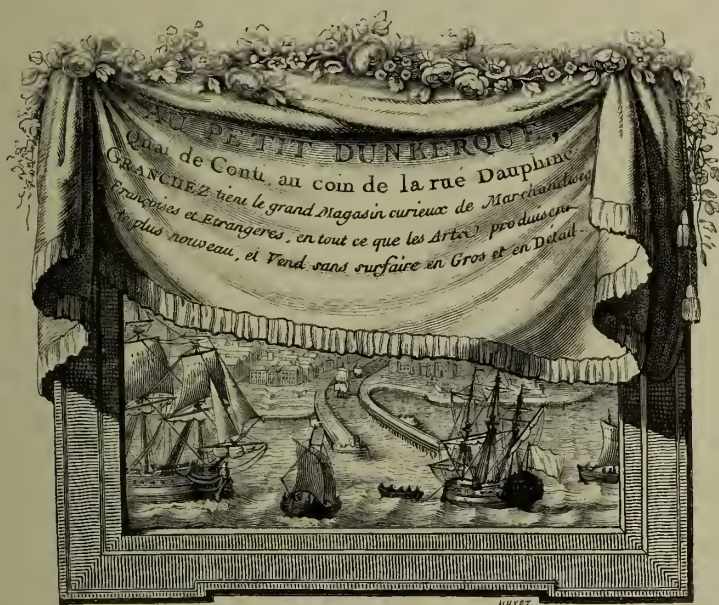 AU PETIT DUNKERQUE,
Quai de Conti, au coin de la rue Dauphine
GRANCHEZ tient le grand Magasin curieux de Marchandises
Françoises et Etrangeres, en tout ce que les Arts produisent
de plus nouveau, et Vend sans surfaire en Gros et en Détail.
HUYOT